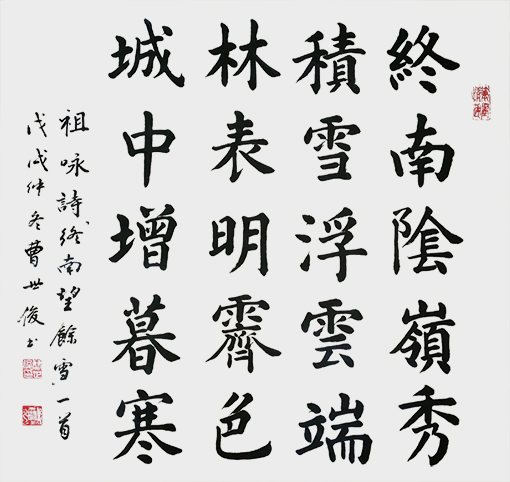 終南陰嶺秀
積雪浮雲端
林表明霽色
城中增暮寒
祖咏詩終南望餘雪一首
戊戌仲冬曹世俊书